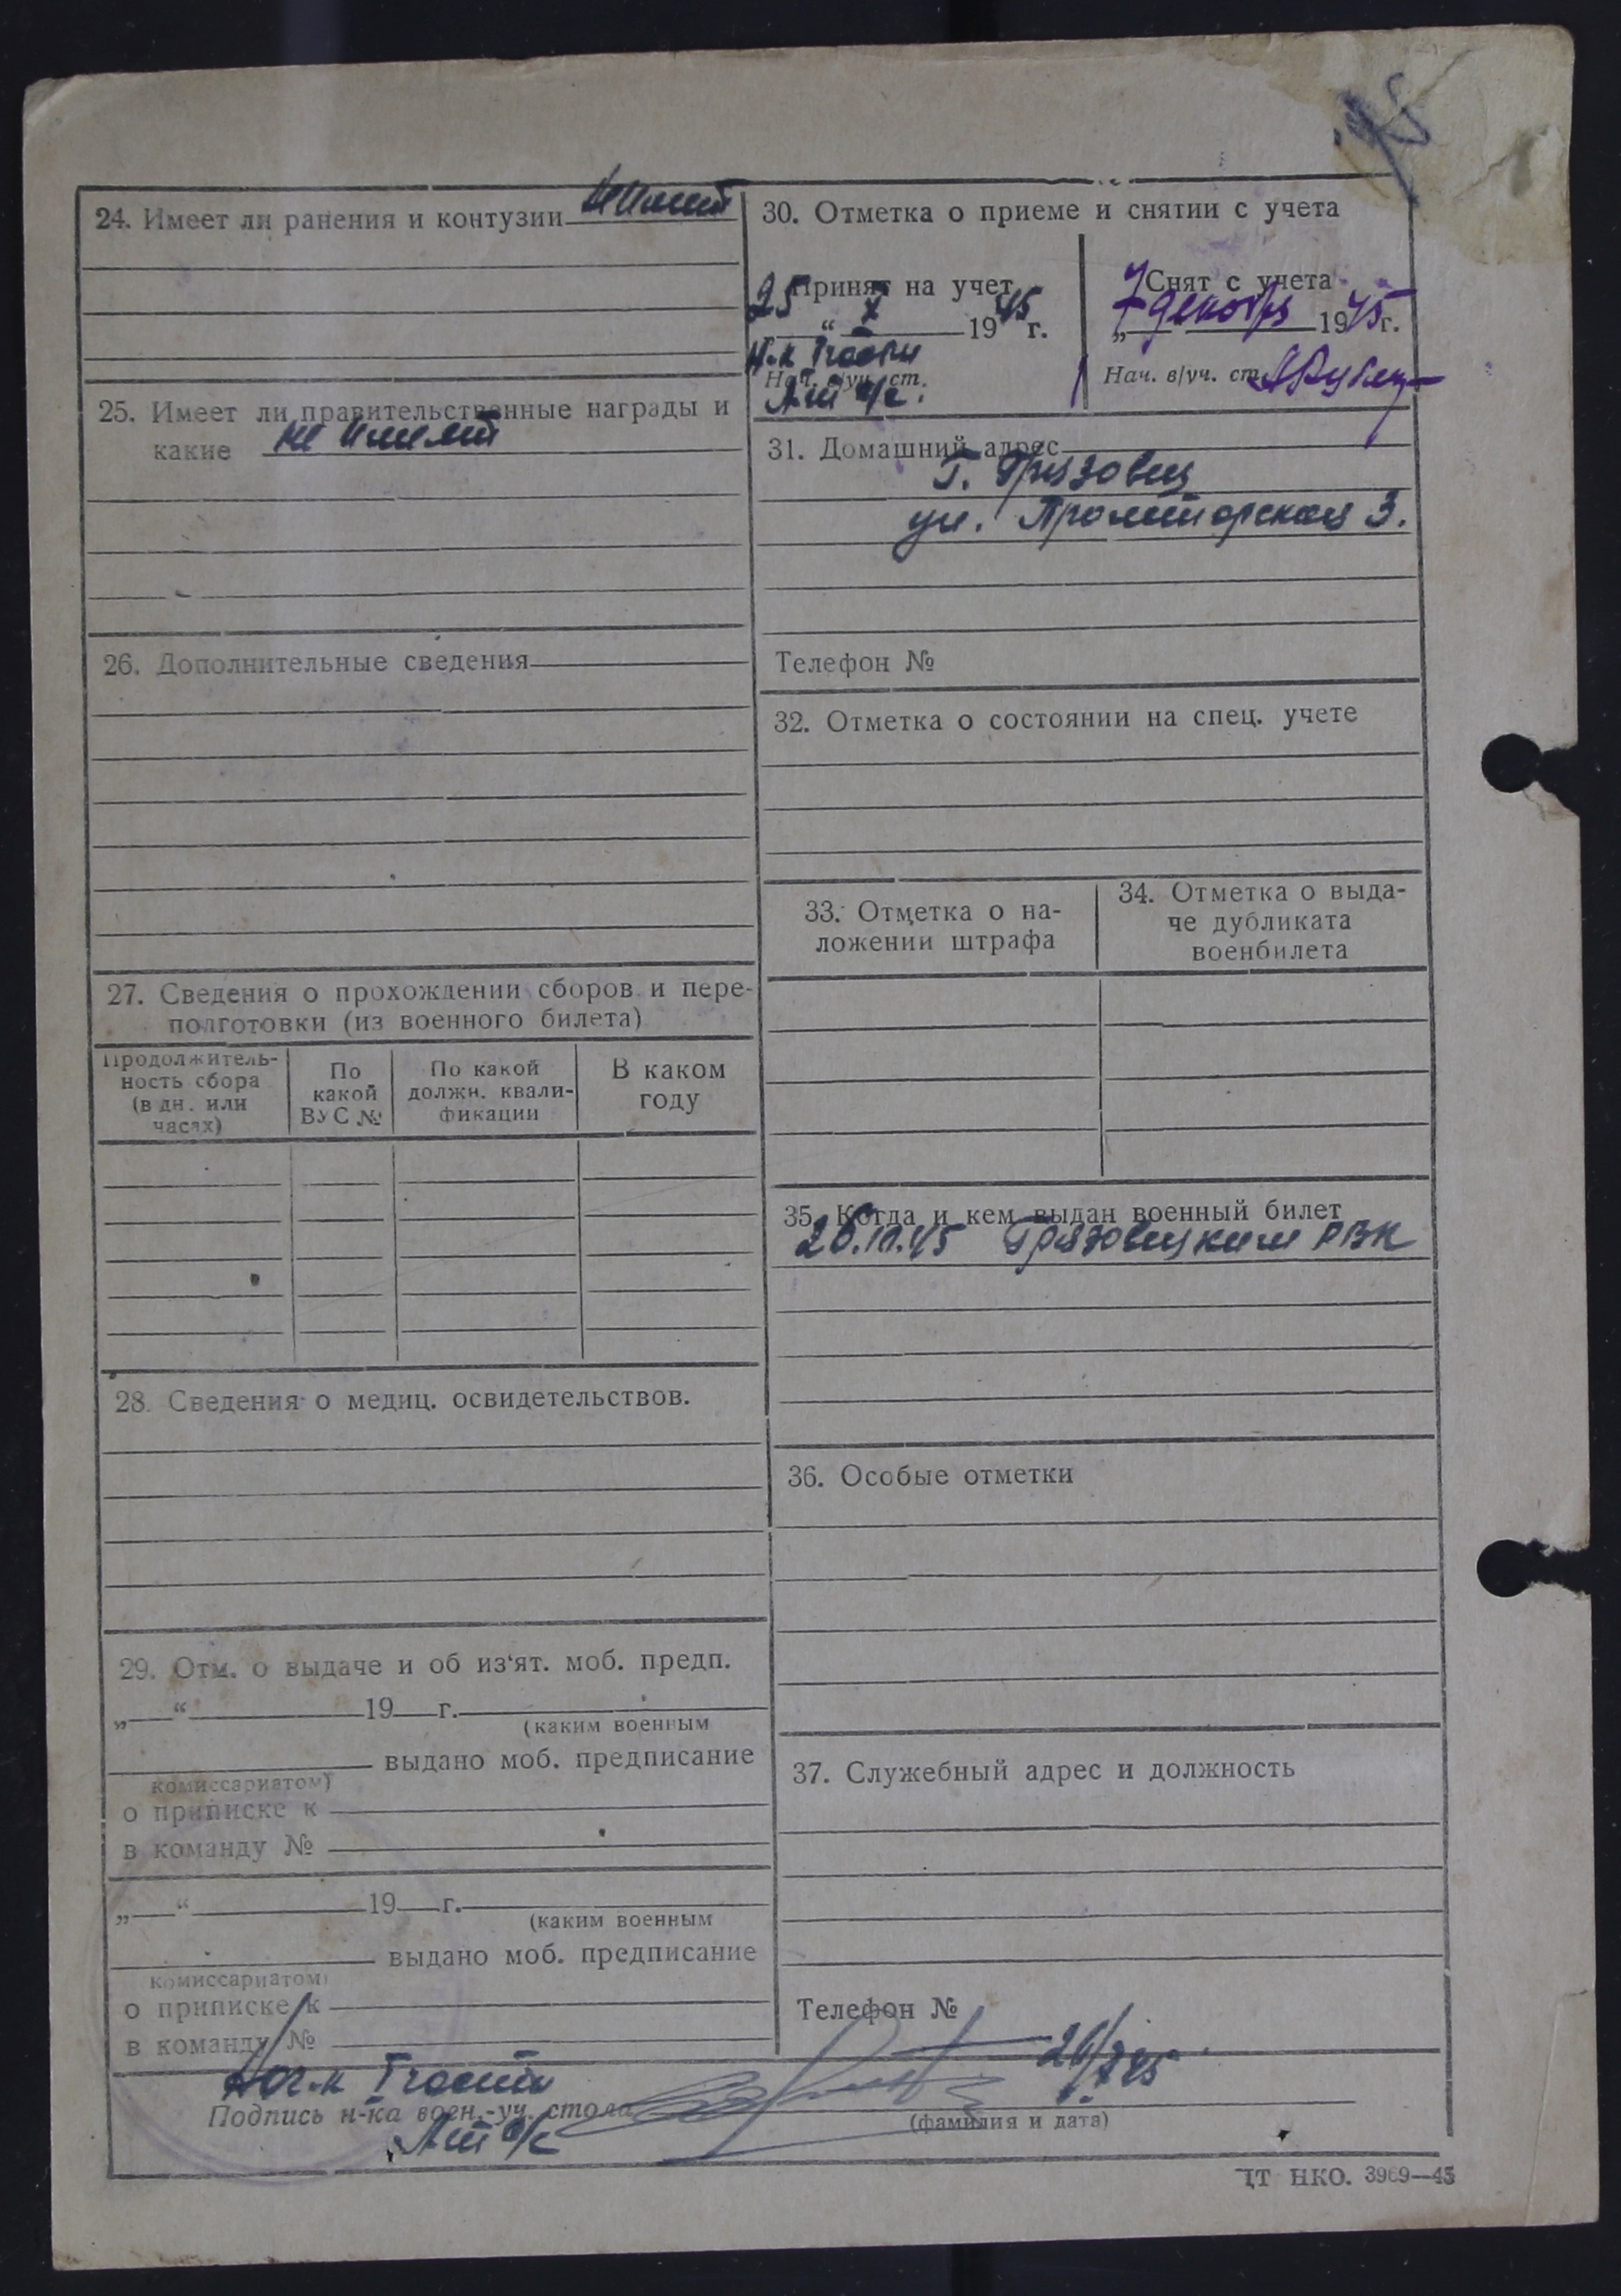 24. Имеет ли ранения и контузии не имеет
25. Имеет ли правительственные награды и
какие не имеет
26. Дополнительные сведения
27. Сведения о прохождении сборов и пере-
подготовки (из военного билета)
Продолжитель-
ность сбора
(в дн. или
часах)
По
какой
ВУС №
По какой
должн. квали-
фикации
В каком
году
28. Сведения о медиц. освидетельствов.
29. Отм. о выдаче и об из‘ят. моб. предп.
„ “ 19 г.
(каким военным
выдано моб. предписание
комиссариатом)
о приписке к
в команду №
„ “ 19 г.
(каким военным
выдано моб. предписание
комиссариатом)
о приписке к
в команду №
30. Отметка о приеме и снятии с учета
Принят на учет
25 “ X 1945 г.
Н-к 1 части
Нач. в/уч. ст.
Снят с учета
„7 декабря 1945 г.
Нач. в/уч. ст.
31. Домашний адрес
г. Грязовец
ул. Пролетарская 3.
Телефон №
32. Отметка о состоянии на спец. учете
33. Отметка о на-
ложении штрафа
34. Отметка о выда-
че дубликата
военбилета
35. Когда и кем выдан военный билет
26.10.45 Грязовецким РВК
36. Особые отметки
37. Служебный адрес и должность
Телефон №
26/X 45
Нач-к 1 части
Подпись н-ка воен.-уч. стола
(фамилия и дата)
ЦТ НКО. 3969—45